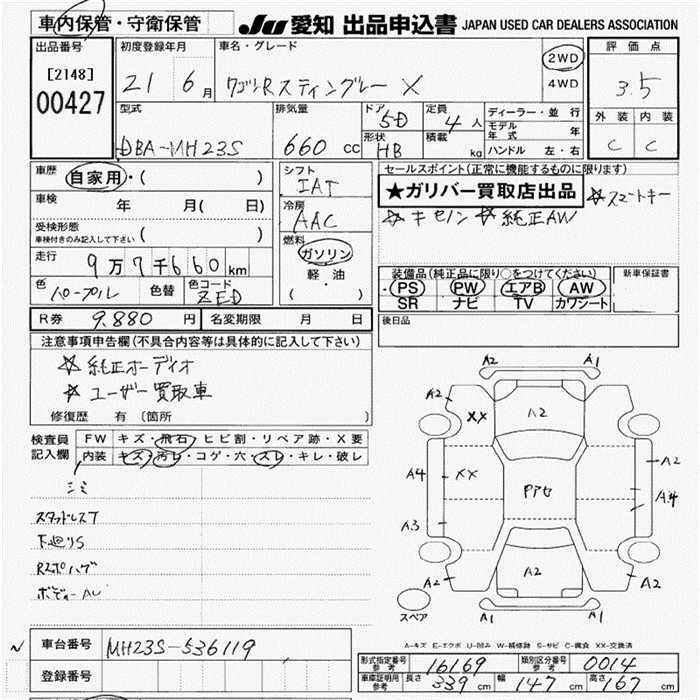 車内保管・守衛保管
JU 愛知 出品申込書 JAPAN USED CAR DEALERS ASSOCIATION
出品番号 初度登録年月 車名・グレード 評価点
[2148] 00427
21 6月 ワゴンRスティングレー X 2WD 4WD 3.5
型式 排気量 ドア 5D 定員 4人 ディーラー・並行
モデル年式 年
外装 内装
DBA-MH23S 660cc 形状 HB 積載 kg ハンドル 左・右 C C
車歴 自家用・( )
シフト IAT
セールスポイント(正常に機能するものに限ります)
★ガリバー買取店出品 ☆スマートキー
車検 年 月( 日)
冷房 AAC
☆キセノン ☆純正AW
受検形態 車検付きのみ記入して下さい ( )
燃料 ガソリン 軽・油 ( )
走行 9万7千660km
装備品(純正品に限り○をつけてください) 新車保証書
・PS PW エアB AW
SR ナビ TV カワシート
色 パープル 色替 色コード ZED
R券 9.880円 名変期限 月 日
後日品
注意事項申告欄(不具合内容等は具体的に記入して下さい)
☆純正オーディオ
☆ユーザー買取車
修復歴 有 〔箇所 〕
検査員記入欄 FW キズ・飛石・ヒビ割・リペア跡・X要
内装 キズ・汚レ・コゲ・穴・スレ・キレ・破レ
シミ
スタッドレスT
下廻りS
Rスポハゲ
A2 A1
A2 XX A2
A4 XX A2
A4
A3
A2 A2 A2
A1 A1
スペア
A-キズ E-エクボ U-凹み W-補修跡 S-サビ C-腐食 XX-交換済
車台番号 MH23S-536119
登録番号
型式指定番号 参考 16169 類別区分番号 参考 0014
車庫証明用 参考 長さ 339cm 幅 147cm 高さ 167cm